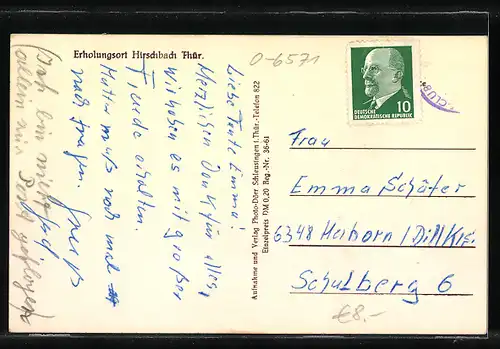 Erholungsort Hirschbach Thür.
0-6571
Liebe Tante Emma!
Herzlichen Dank für alles,
wir haben es mit großer
Freude erhalten.
Mutter muß noch mal
nach fragen. Gruß
(Ich bin nicht
allein mir
Aufnahme und Verlag Photo-Dörr Schleusingen i. Thür. - Telefon 822
Einzelpreis DM 0,20 Reg.-Nr. 36-61
DEUTSCHE
DEMOKRATISCHE REPUBLIK
10
CLUB
Frau
Emma Schäfer
6348 Herborn / Dill Krs.
Schulberg 6
€8,-